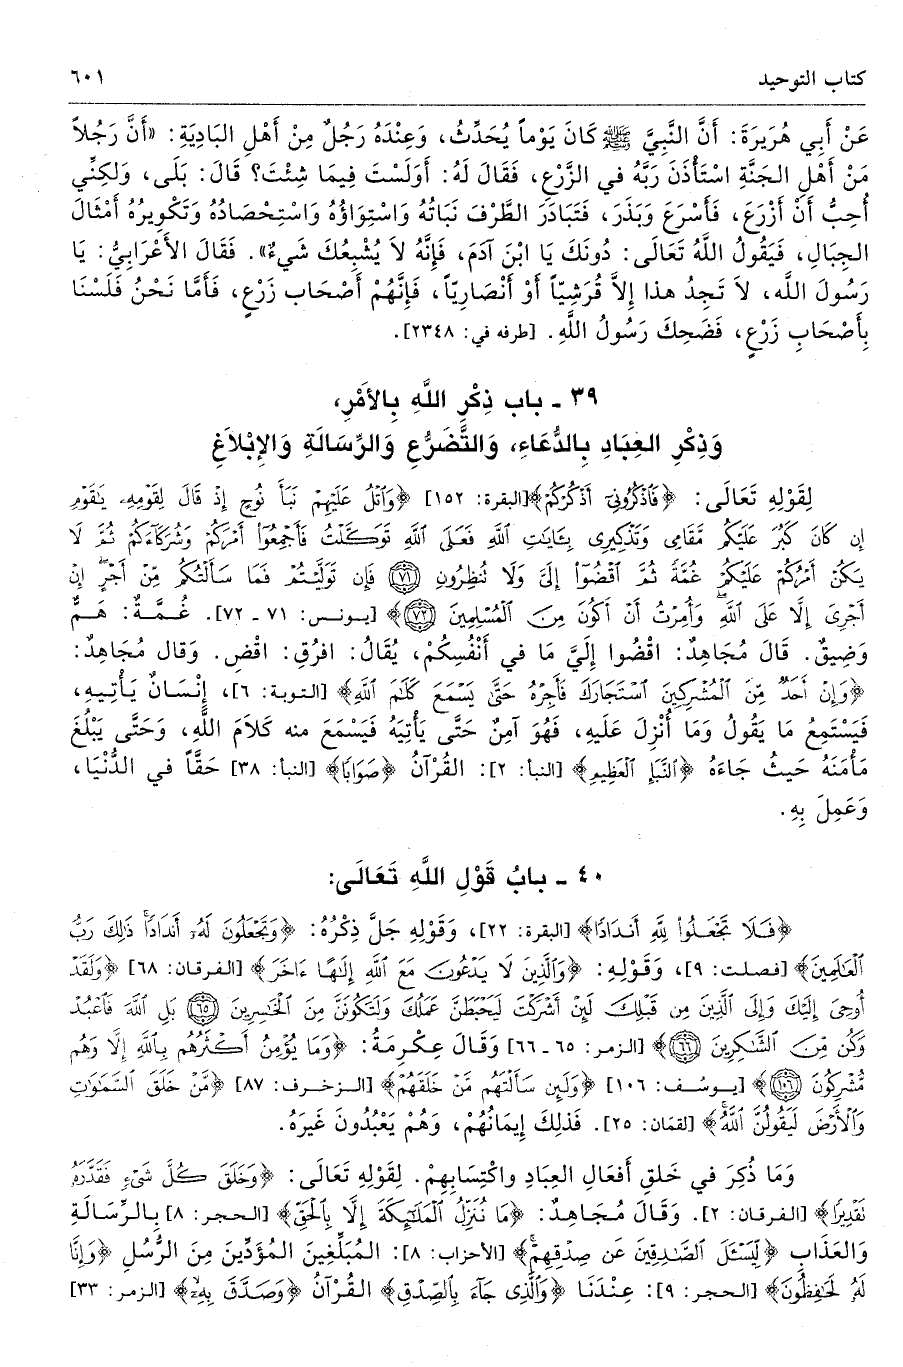 كتاب التوحيد ٦٠١
عَنْ أَبِي هُرَيرَةَ: أَنَّ النَّبِيَّ ﷺ كَانَ يَوْماً يُحَدِّثُ، وَعِنْدَهُ رَجُلٌ مِنْ أَهْلِ البَادِيَةِ: «أَنَّ رَجُلاً
مَنْ أَهْلِ الجَنَّةِ اسْتَأْذَنَ رَبَّهُ في الزَّرْعِ، فَقَالَ لَهُ: أَوَلَسْتَ فِيمَا شِئْتَ؟ قالَ: بَلَى، وَلكِنِّي
أُحِبُّ أَنْ أَزْرَعَ، فَأَسْرَعَ وَبَذَرَ، فَتَبَادَرَ الطَّرْفَ نَبَاتُهُ وَاسْتِوَاؤُهُ وَاسْتِحْصَادُهُ وَتَكْوِيرُهُ أَمْثَالَ
الجِبَالِ، فَيَقُولُ اللَّهُ تَعَالَى: دُونَكَ يَا ابْنَ آدَمَ، فَإِنَّهُ لاَ يُشْبِعُكَ شَيءٌ». فَقَالَ الأَعْرَابِيُّ: يَا
رَسُولَ اللَّه، لاَ تَجِدُ هذا إِلاَّ قُرَشِيّاً أَوْ أَنْصَارِيّاً، فَإِنَّهُمْ أَصْحَاب زَرْعٍ، فَأَمَّا نَحْنُ فَلَسْنَا
بِأَصْحَابِ زَرْعٍ، فَضَحِكَ رَسُولُ اللَّهِ. [طرفه في: ٢٣٤٨].
٣٩ ـ باب ذِكْرِ اللَّهِ بِالأَمْرِ،
وَذِكْرِ العِبَادِ بِالدُّعَاءِ، وَالتَّضَرُّعِ وَالرِّسَالَةِ وَالإِبْلاَغِ
لِقَوْلِهِ تَعَالَى: ﴿فَاذْكُرُونِي أَذْكُرْكُمْ﴾[البقرة: ١٥٢] ﴿وَاتْلُ عَلَيْهِمْ نَبَأَ نُوحٍ إِذْ قَالَ لِقَوْمِهِ يَاقَوْمِ
إِن كَانَ كَبُرَ عَلَيْكُم مَّقَامِي وَتَذْكِيرِي بِآيَاتِ اللَّهِ فَعَلَى اللَّهِ تَوَكَّلْتُ فَأَجْمِعُوا أَمْرَكُمْ وَشُرَكَاءَكُمْ ثُمَّ لَا
يَكُنْ أَمْرُكُمْ عَلَيْكُمْ غُمَّةً ثُمَّ اقْضُوا إِلَيَّ وَلَا تُنظِرُونِ ﴿٧١﴾ فَإِن تَوَلَّيْتُمْ فَمَا سَأَلْتُكُم مِّنْ أَجْرٍ إِنْ
أَجْرِيَ إِلَّا عَلَى اللَّهِ وَأُمِرْتُ أَنْ أَكُونَ مِنَ الْمُسْلِمِينَ ﴿٧٢﴾﴾ [يونس: ٧١ ـ ٧٢]. غُمَّةٌ: هَمٌّ
وَضِيقٌ. قَالَ مُجَاهِدٌ: اقْضُوا إِلَيَّ مَا في أَنْفُسِكُمْ، يُقَالُ: افرُقِ: اقْضِ. وَقال مُجَاهِدٌ:
﴿وَإِنْ أَحَدٌ مِّنَ الْمُشْرِكِينَ اسْتَجَارَكَ فَأَجِرْهُ حَتَّىٰ يَسْمَعَ كَلَامَ اللَّهِ﴾ [التوبة: ٦]، إِنْسَانٌ يَأْتِيهِ،
فَيَسْتَمِعُ مَا يَقُولُ وَمَا أُنْزِلَ عَلَيهِ، فَهُوَ آمِنٌ حَتَّى يَأْتِيَهُ فَيَسْمَعَ منه كَلاَمَ اللَّهِ، وَحَتَّى يَبْلُغَ
مَأْمَنَهُ حَيثُ جَاءَهُ ﴿النَّبَإِ الْعَظِيمِ﴾ [النبأ: ٢]: القُرْآنُ ﴿صَوَابًا﴾ [النبأ: ٣٨] حَقّاً في الدُّنْيَا،
وَعَمِلَ بِهِ.
٤٠ ـ بابُ قَوْلِ اللَّهِ تَعَالَى:
﴿فَلَا تَجْعَلُوا لِلَّهِ أَندَادًا﴾ [البقرة: ٢٢]، وَقَوْلِهِ جَلَّ ذِكْرُهُ: ﴿وَتَجْعَلُونَ لَهُ أَندَادًا ذَٰلِكَ رَبُّ
الْعَالَمِينَ﴾ [فصلت: ٩]، وَقَوْلِهِ: ﴿وَالَّذِينَ لَا يَدْعُونَ مَعَ اللَّهِ إِلَٰهًا ءَاخَرَ﴾ [الفرقان: ٦٨] ﴿وَلَقَدْ
أُوحِيَ إِلَيْكَ وَإِلَى الَّذِينَ مِن قَبْلِكَ لَئِنْ أَشْرَكْتَ لَيَحْبَطَنَّ عَمَلُكَ وَلَتَكُونَنَّ مِنَ الْخَاسِرِينَ ﴿٦٥﴾ بَلِ اللَّهَ فَاعْبُدْ
وَكُن مِّنَ الشَّاكِرِينَ ﴿٦٦﴾﴾ [الزمر: ٦٥ ـ ٦٦] وَقَالَ عِكْرِمَةُ: ﴿وَمَا يُؤْمِنُ أَكْثَرُهُم بِاللَّهِ إِلَّا وَهُم
مُّشْرِكُونَ ﴿١٠٦﴾﴾ [يوسُف: ١٠٦] ﴿وَلَئِن سَأَلْتَهُم مَّنْ خَلَقَهُمْ﴾ [الزخرف: ٨٧] ﴿مَّنْ خَلَقَ السَّمَاوَاتِ
وَالْأَرْضَ لَيَقُولُنَّ اللَّهُ﴾ [لقمَان: ٢٥]. فَذلِكَ إِيمَانُهُمْ، وَهُمْ يَعْبُدُونَ غَيرَهُ.
وَمَا ذُكِرَ في خَلقِ أَفعَالِ العِبَادِ واكْتِسَابِهِمْ. لِقَوْلِهِ تَعَالَى: ﴿وَخَلَقَ كُلَّ شَيْءٍ فَقَدَّرَهُ
تَقْدِيرًا﴾ [الفرقان: ٢]. وَقَالَ مُجَاهِدٌ: ﴿مَا نُنَزِّلُ الْمَلَائِكَةَ إِلَّا بِالْحَقِّ﴾ [الحجر: ٨] بِالرِّسَالَةِ
وَالعَذَابِ ﴿لِّيَسْأَلَ الصَّادِقِينَ عَن صِدْقِهِمْ﴾ [الأحزاب: ٨]: المُبَلِّغِينَ المُؤَدِّينَ مِنَ الرُّسُلِ ﴿وَإِنَّا
لَهُ لَحَافِظُونَ﴾ [الحجر: ٩]: عِنْدَنَا ﴿وَالَّذِي جَاءَ بِالصِّدْقِ﴾ القُرْآنُ ﴿وَصَدَّقَ بِهِ﴾ [الزمر: ٣٣]